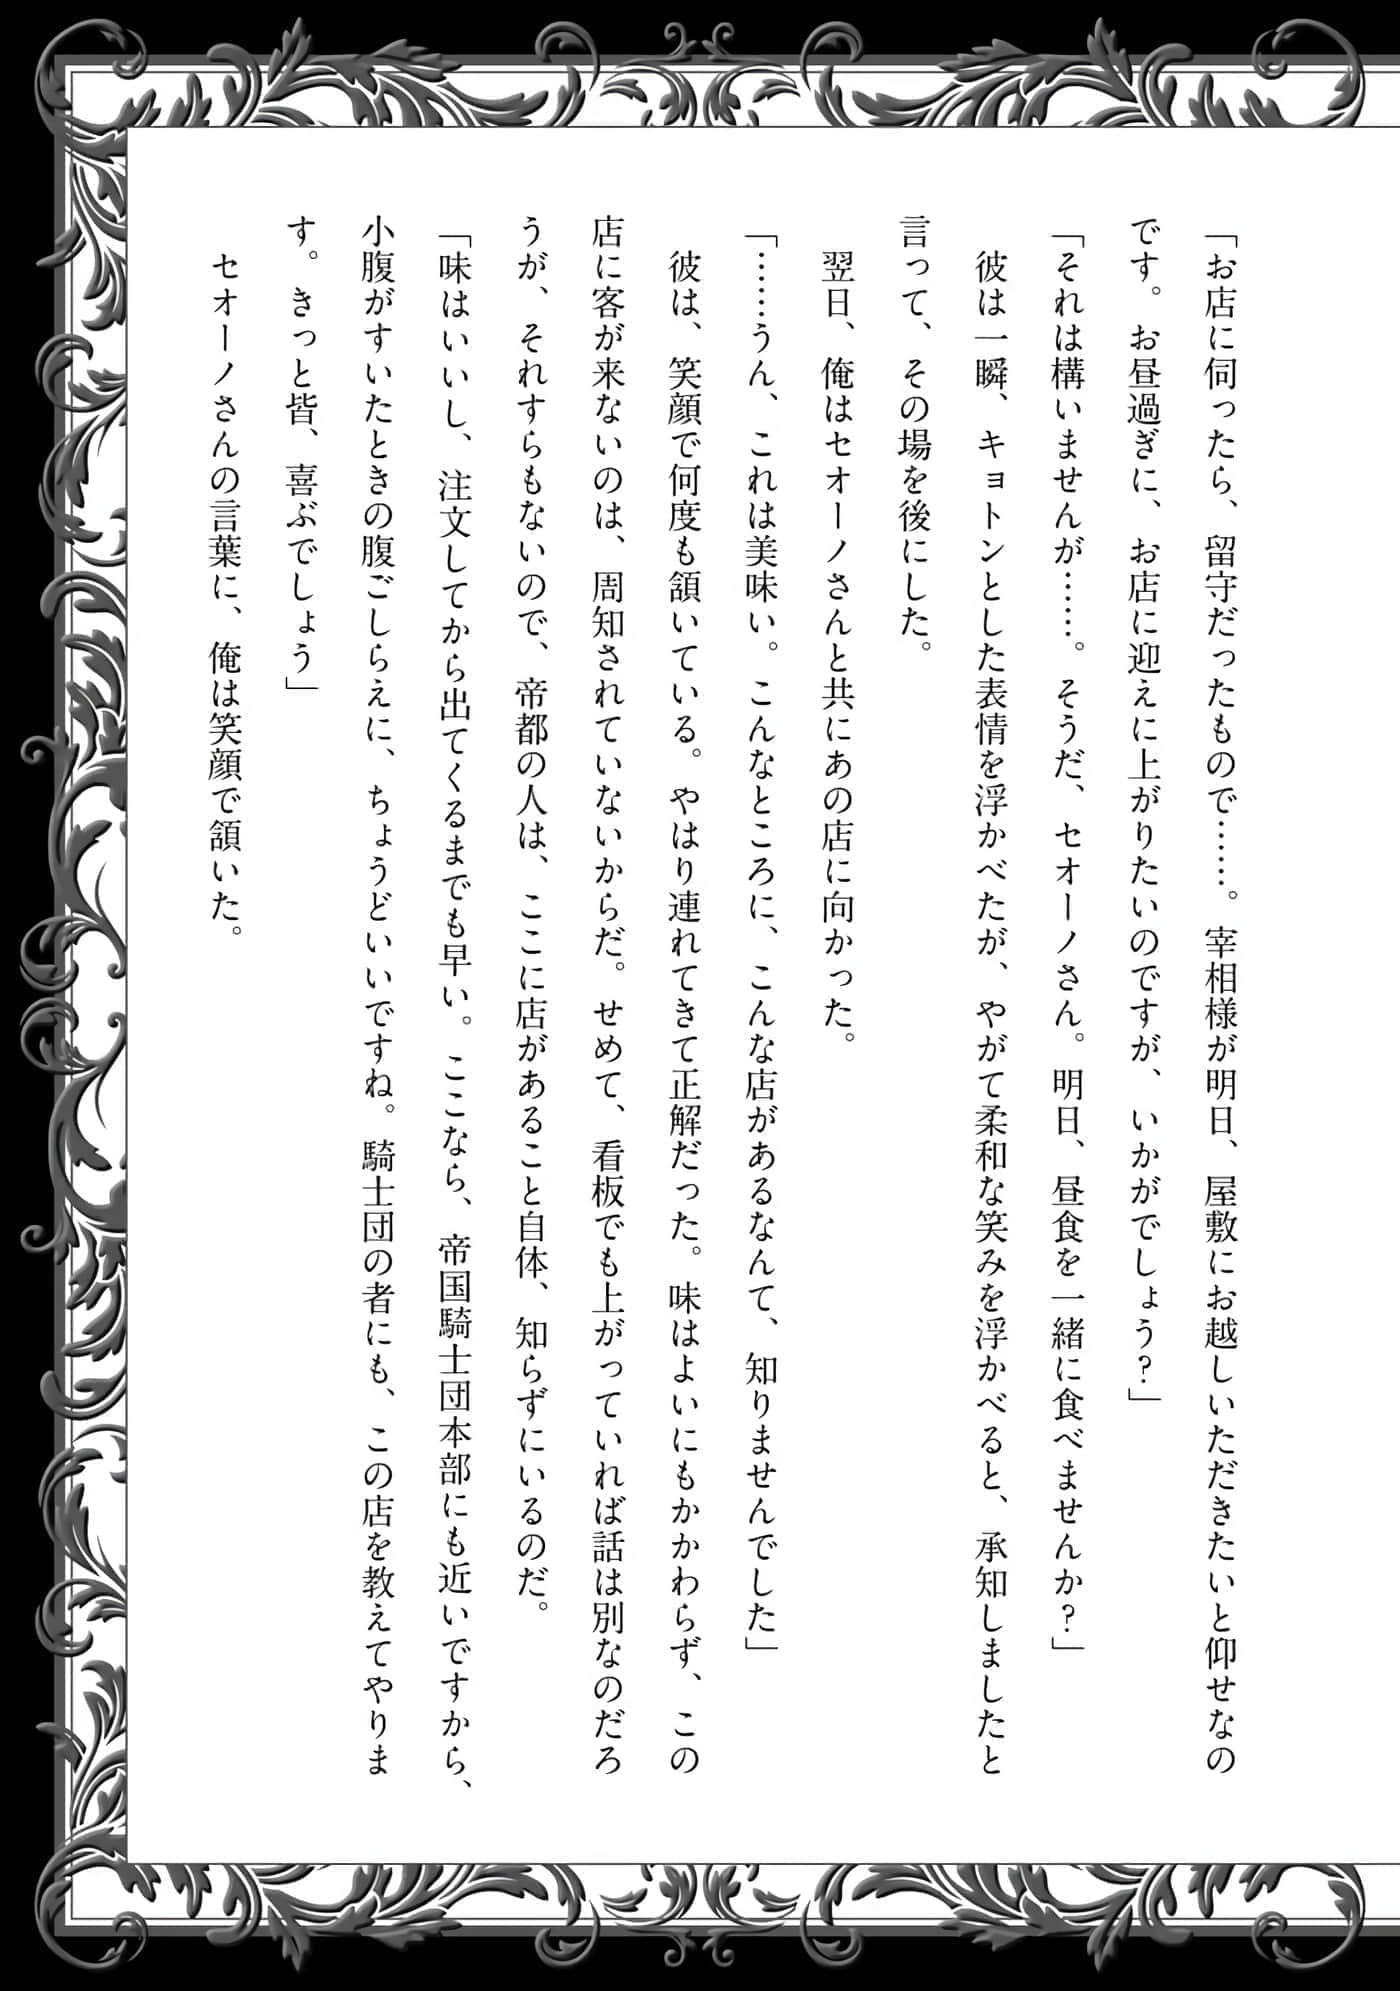 「お店に伺ったら、留守だったもので……。宰相様が明日、屋敷にお越しいただきたいと仰せなの
です。お昼過ぎに、お店に迎えに上がりたいのですが、いかがでしょう？」
「それは構いませんが……。そうだ、セオーノさん。明日、昼食を一緒に食べませんか？」
彼は一瞬、キョトンとした表情を浮かべたが、やがて柔和な笑みを浮かべると、承知しましたと
言って、その場を後にした。
翌日、俺はセオーノさんと共にあの店に向かった。
「……うん、これは美味い。こんなところに、こんな店があるなんて、知りませんでした」
彼は、笑顔で何度も頷いている。やはり連れてきて正解だった。味はよいにもかかわらず、この
店に客が来ないのは、周知されていないからだ。せめて、看板でも上がっていれば話は別なのだろ
うが、それすらもないので、帝都の人は、ここに店があること自体、知らずにいるのだ。
「味はいいし、注文してから出てくるまでも早い。ここなら、帝国騎士団本部にも近いですから、
小腹がすいたときの腹ごしらえに、ちょうどいいですね。騎士団の者にも、この店を教えてやりま
す。きっと皆、喜ぶでしょう」
セオーノさんの言葉に、俺は笑顔で頷いた。